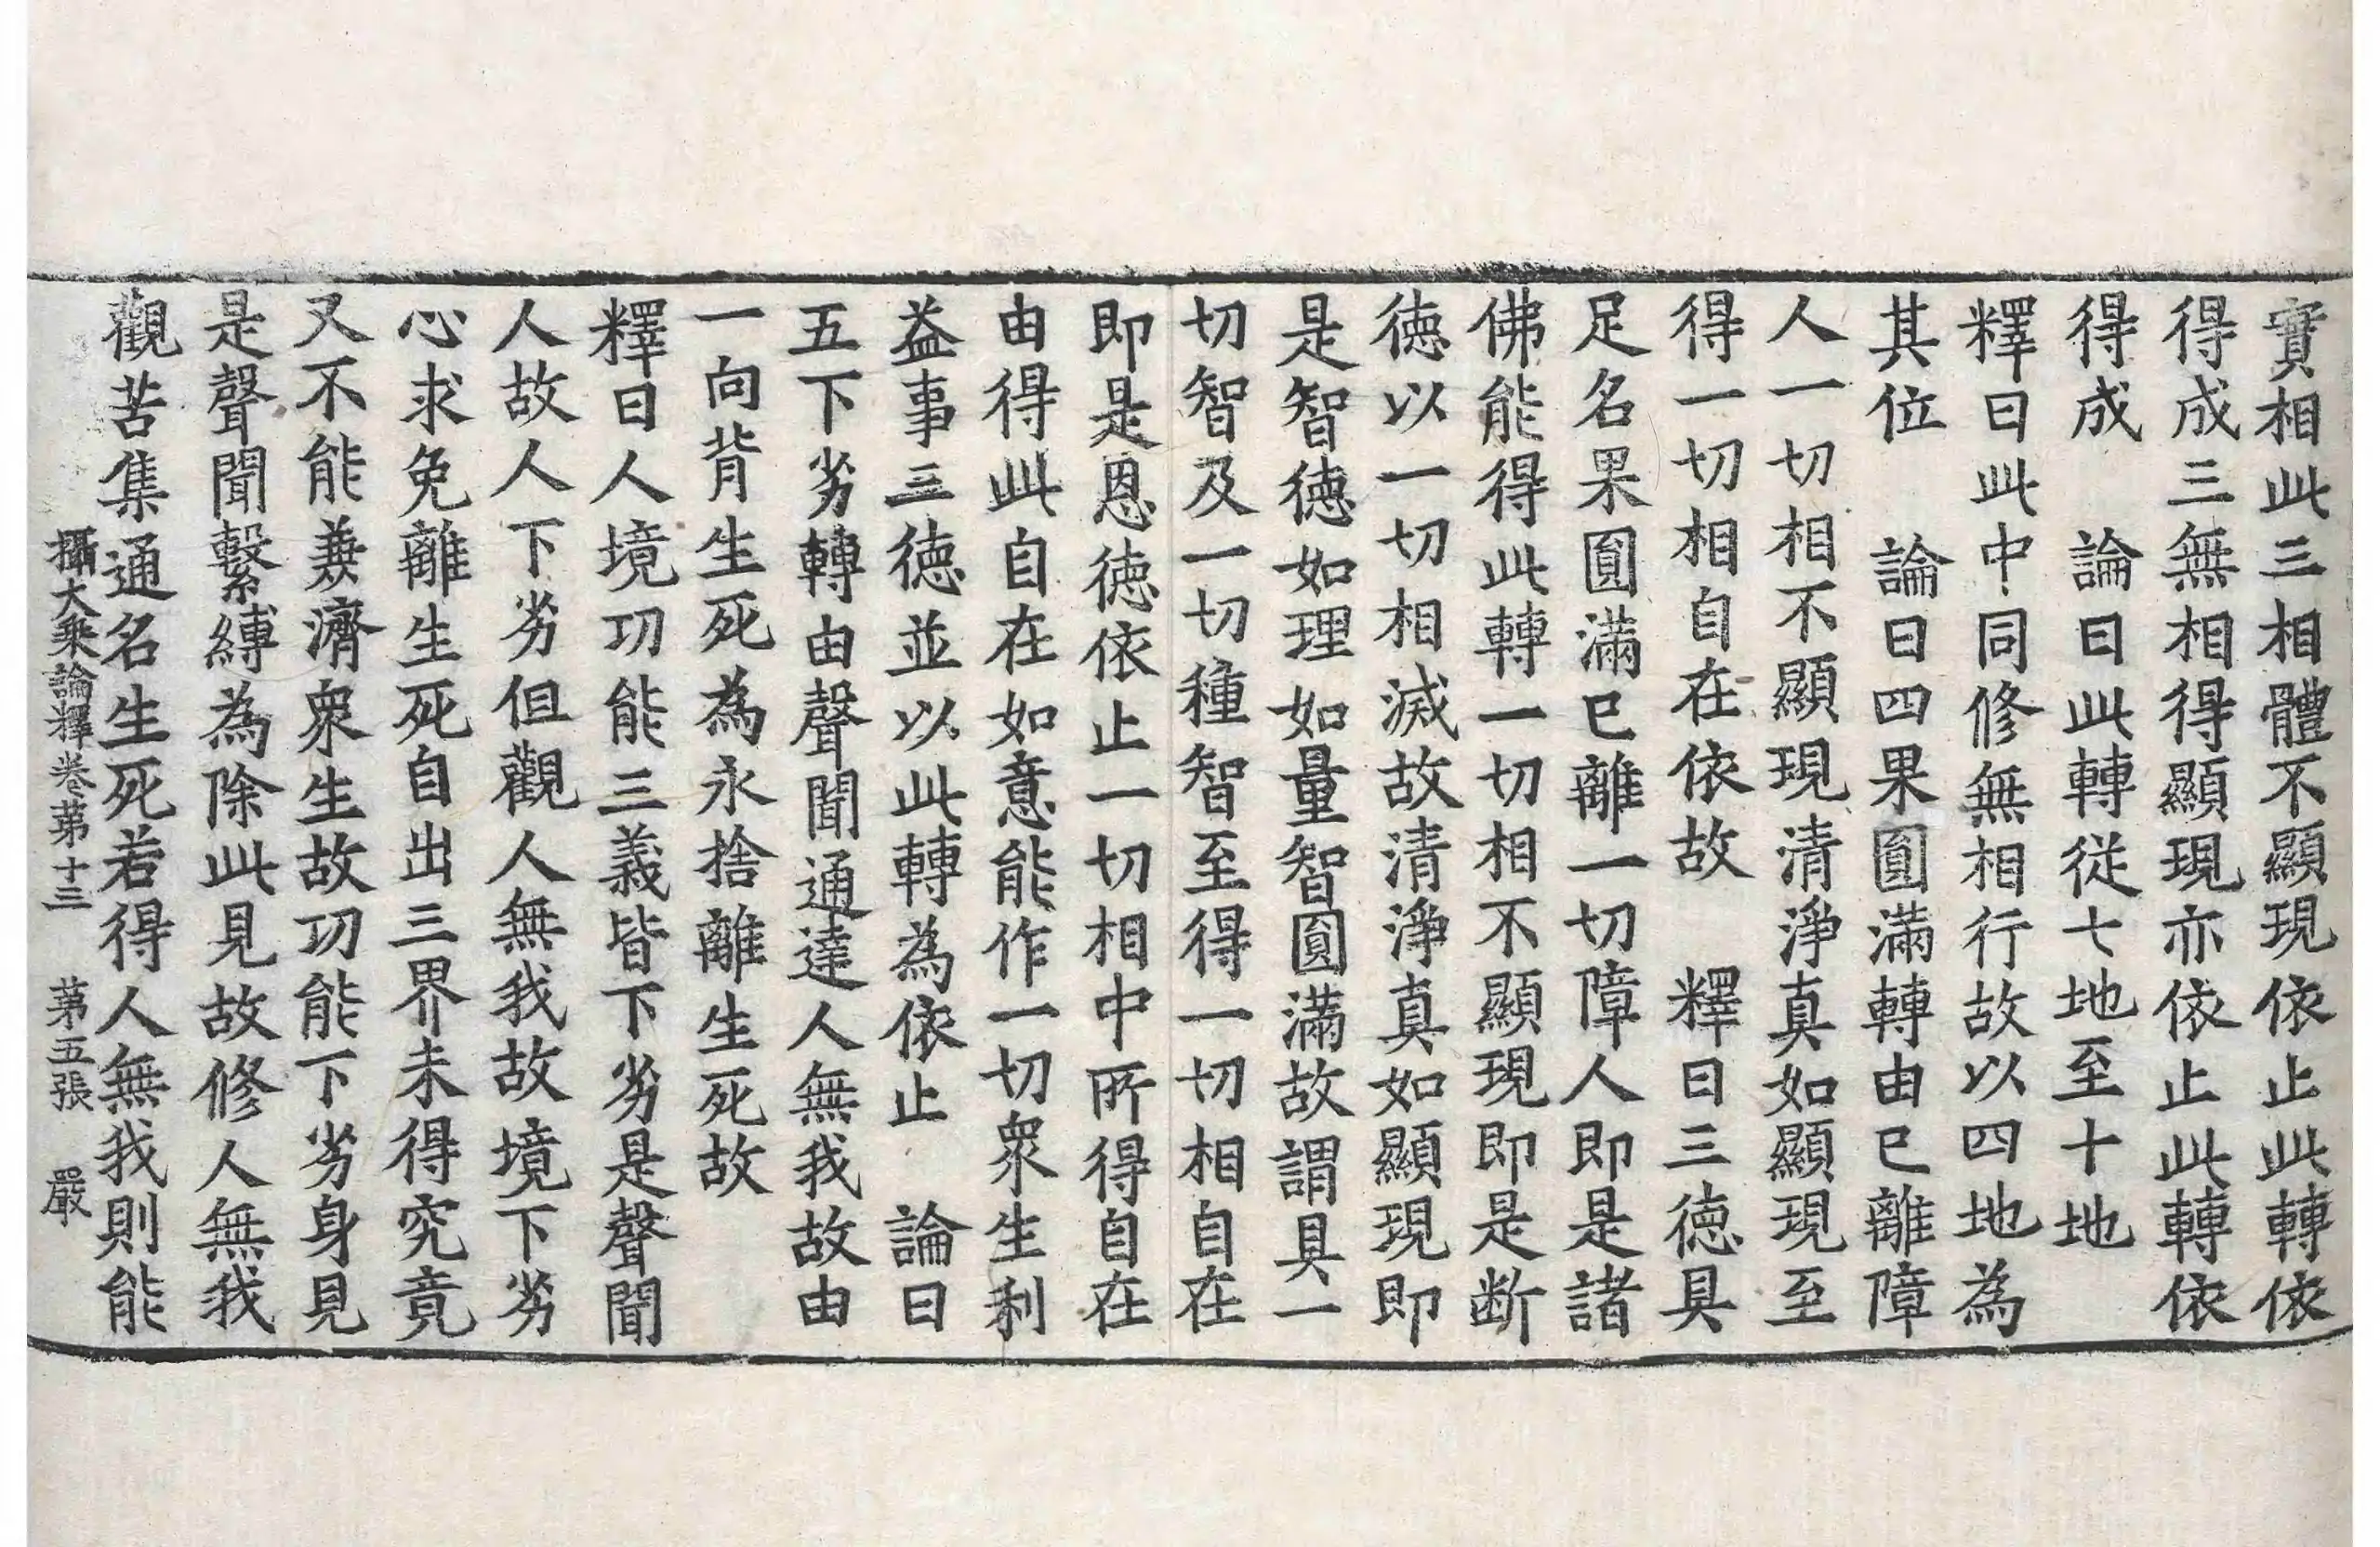 實相此三相體不顯現依止此轉依
得成三無相得顯現亦依止此轉依
得成　論曰此轉從七地至十地
釋曰此中同修無相行故以四地為
其位　論曰四果圓滿轉由已離障
人一切相不顯現清淨真如顯現至
得一切相自在依故　釋曰三德具
足名果圓滿已離一切障人即是諸
佛能得此轉一切相不顯現即是斷
德以一切相滅故清淨真如顯現即
是智德如理如量智圓滿故謂具一
切智及一切種智至得一切相自在
即是恩德依止一切相中所得自在
由得此自在如意能作一切衆生利
益事三德並以此轉為依止　論曰
五下劣轉由聲聞通達人無我故由
一向背生死為永捨離生死故
釋曰人境功能三義皆下劣是聲聞
人故人下劣但觀人無我故境下劣
心求免離生死自出三界未得究竟
又不能兼濟衆生故功能下劣身見
是聲聞繫縛為除此見故修人無我
觀苦集通名生死若得人無我則能
攝大乘論釋卷第十三　第五張　嚴